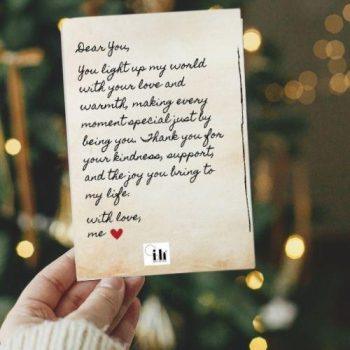 Dear You,
You light up my world
with your love and
warmth, making every
moment special just by
being you. Thank you for
your kindness, support,
and the joy you bring to
my life.
with love,
me